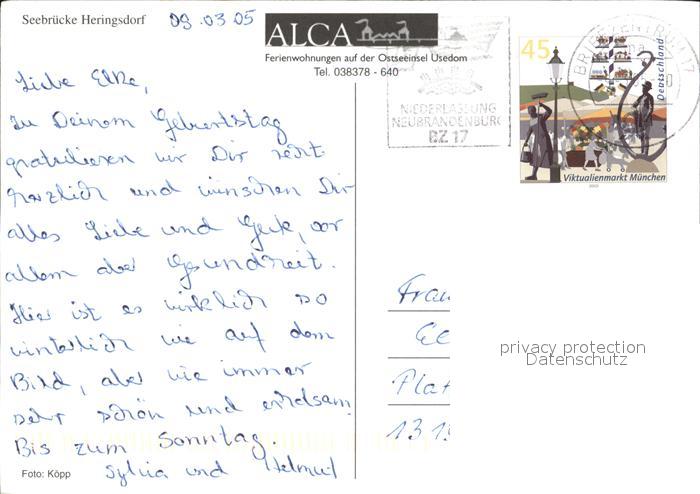 Seebrücke Heringsdorf
09.03.05
ALCA
Ferienwohnungen auf der Ostseeinsel Usedom
Tel. 038378 - 640
Liebe Elke,
zu Deinem Geburtstag
gratulieren wir Dir recht
herzlich und wünschen Dir
alles Liebe und Gute, vor
allem aber Gesundheit.
Hier ist es wirklich so
winterlich wie auf dem
Bild, aber wie immer
sehr schön und erholsam.
Bis zum Sonntag.
Sylvia und Helmut
Foto: Köpp
NIEDERLASSUNG
NEUBRANDENBURG
BZ 17
BRIEFZENTRUM 17
45
Deutschland
Viktualienmarkt München
Frau
Plat
13.15
privacy protection
Datenschutz